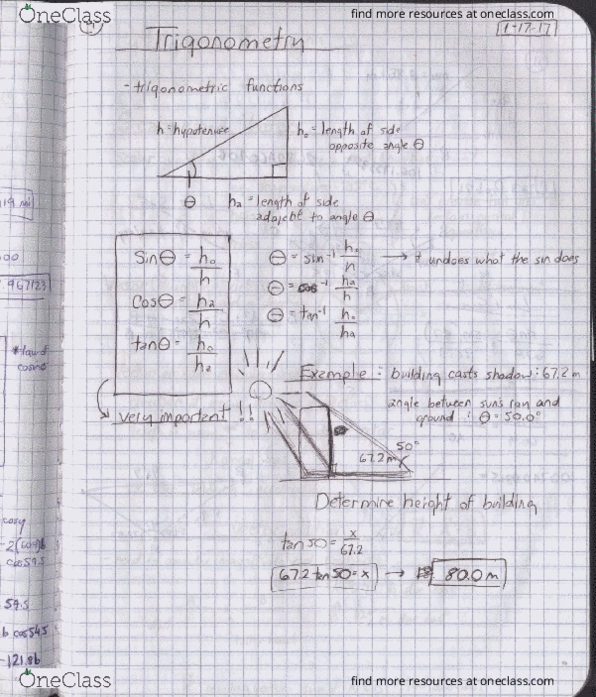 OneClass
find more resources at oneclass.com
1-17-17
Trigonometry
- trigonometric functions
h = hypotenuse
h₀ = length of side
opposite angle θ
θ
ha = length of side
adajent to angle θ
Sinθ = h₀/h
Cosθ = ha/h
tanθ = h₀/ha
θ = sin⁻¹ h₀/h → it undoes what the sin does
θ = cos⁻¹ ha/h
θ = tan⁻¹ h₀/ha
very important !!
Example : building casts shadow: 67.2 m
angle between sun's ray and
ground : θ = 50.0°
50°
67.2 m
Determine height of building
tan 50 = x/67.2
67.2 tan 50 = x → 80.0 m
19 mi
00
967123
*law of
cosine
cosy
-2(
cos59.5
59.5
b cos54.5
-121.8b
OneClass
find more resources at oneclass.com